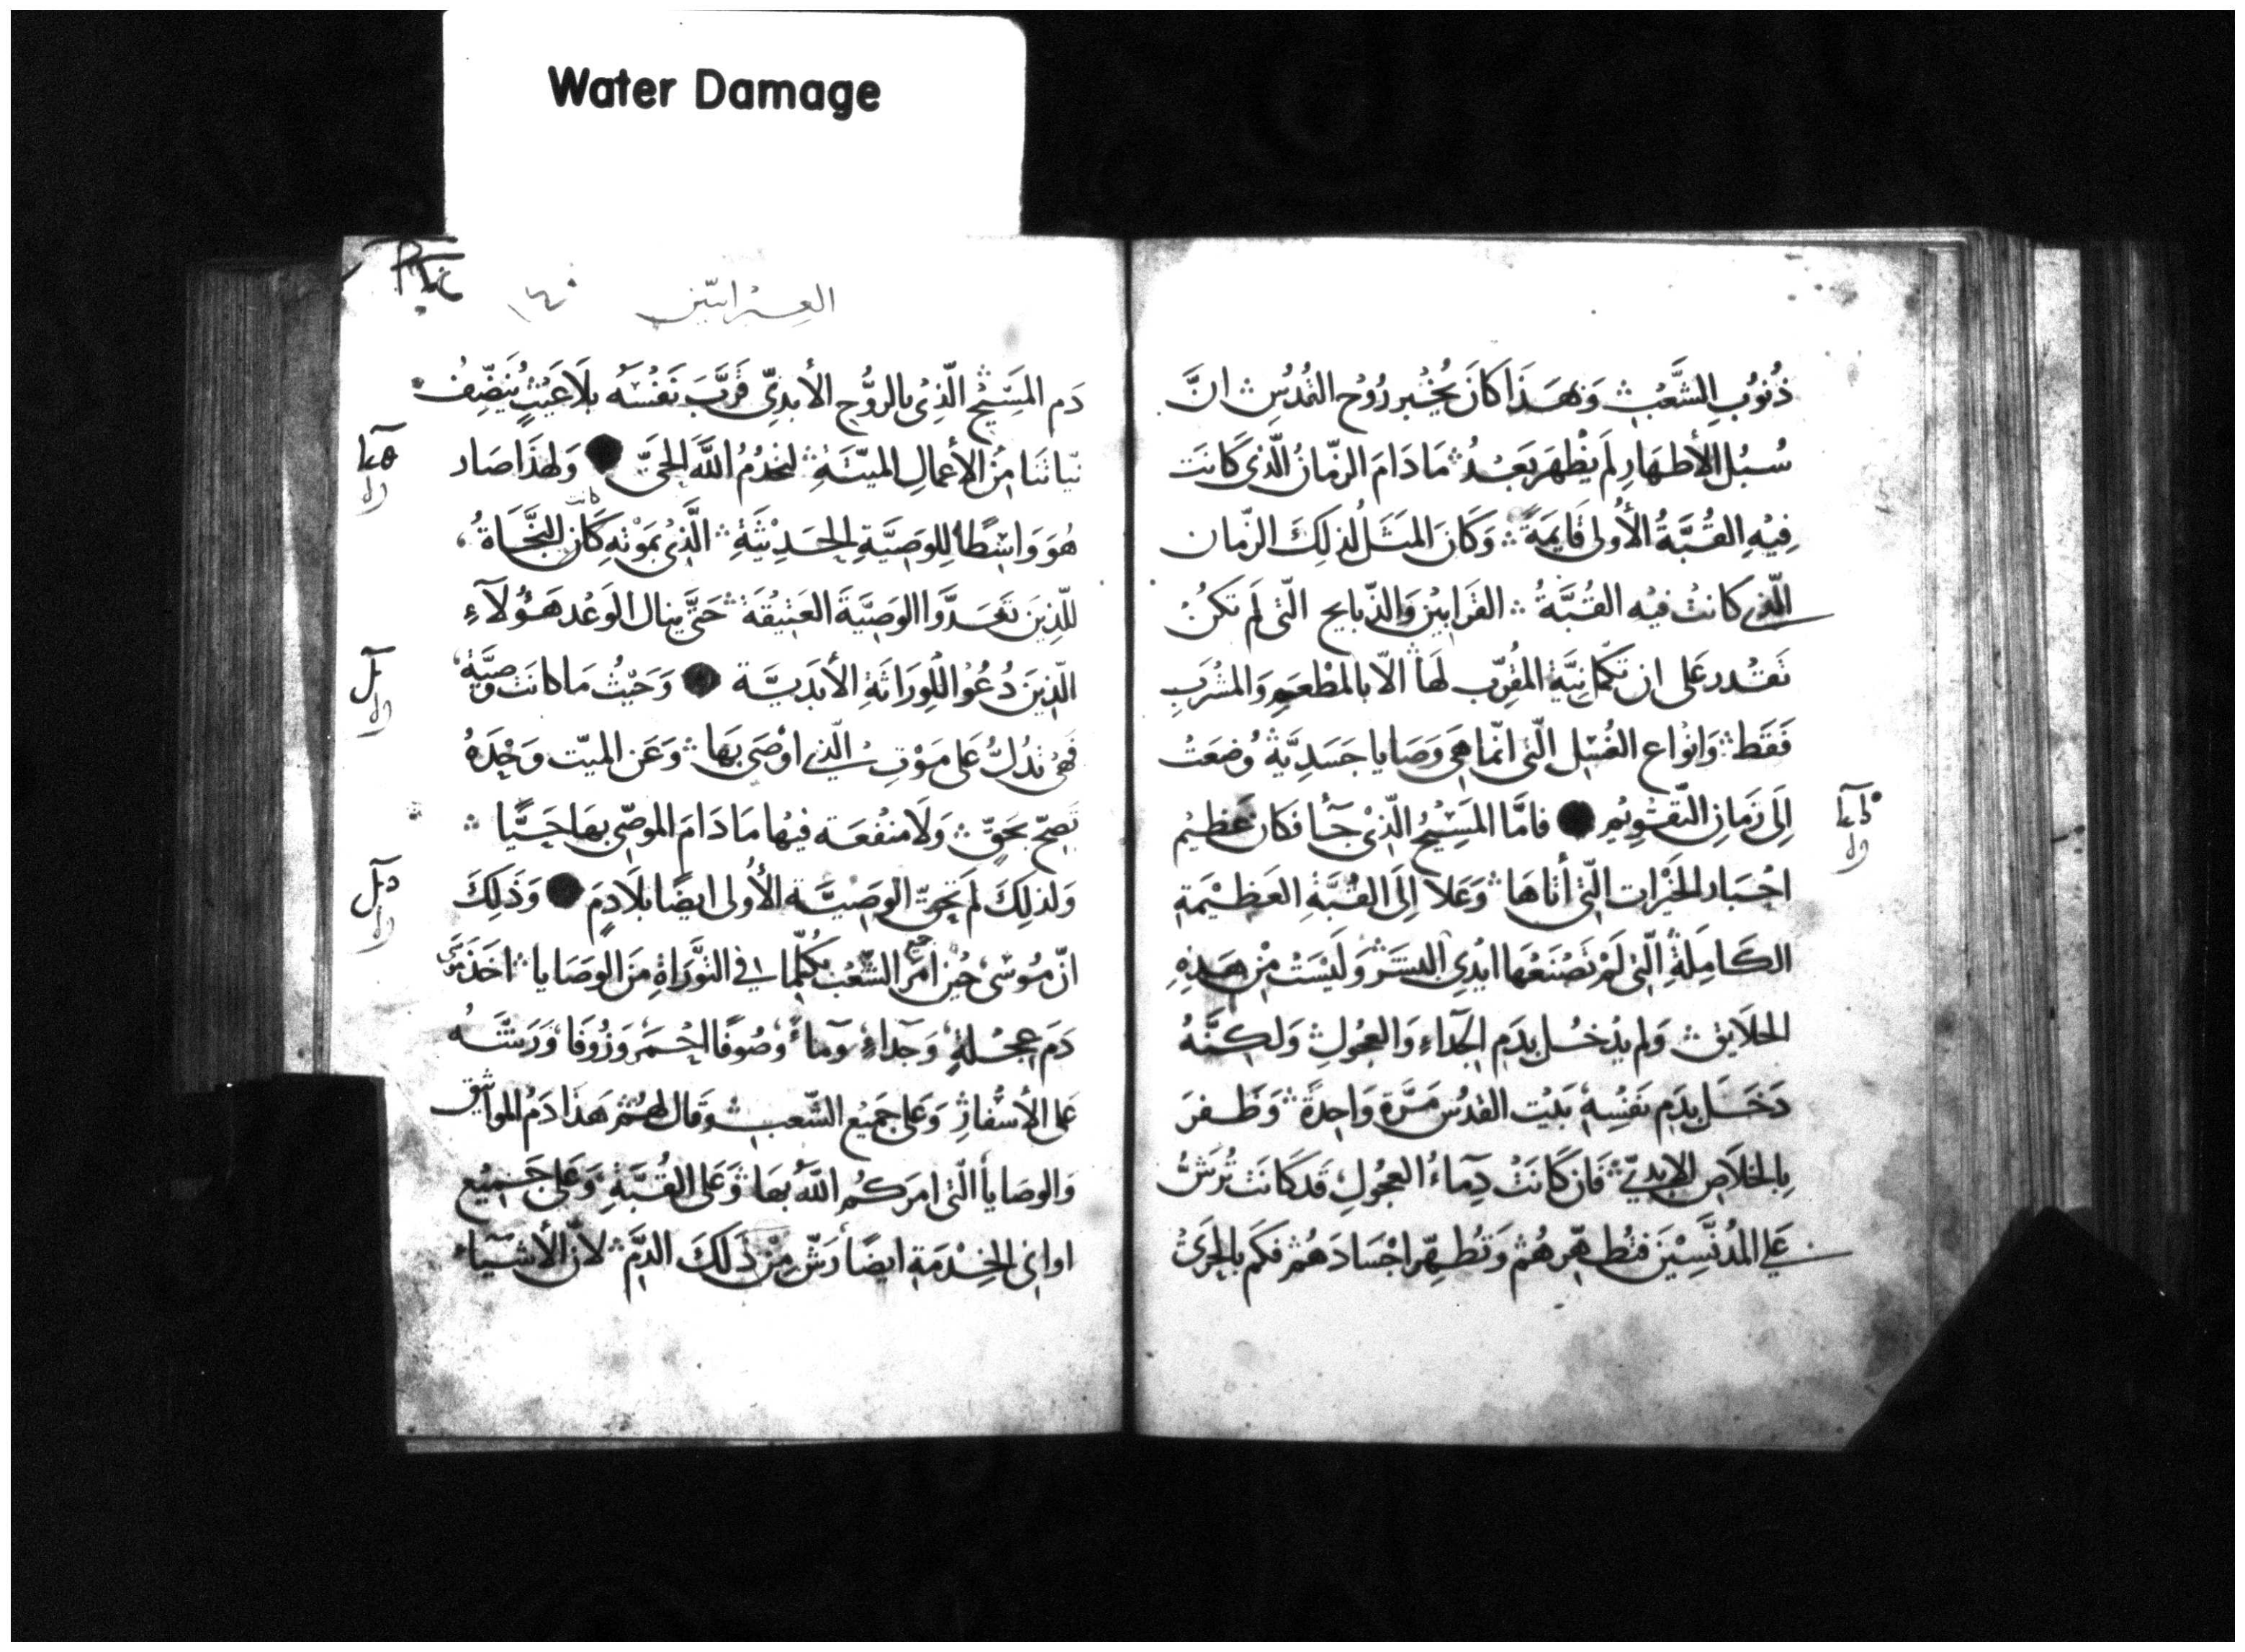 Water Damage
ذُنُوبِ الشَّعْبِ ۞ وَبِهَذَا كَانَ يُخْبِر رُوُح القُدُسِ ۞ انَّ
سُبُل الأطهَارِ لَم يظْهَر بَعْدُ ۞ مَادَامَ الزّمَانُ الَّذي كَانَت
فِيْهِ القُبَّةُ الأُولى قَايمَةً ۞ وَكَانَ المَثَلُ لذلِكَ الزّمان
الّذي كانتْ فيْه القُبَّةُ ۞ القَرَابيْن وَالذّبايح الّتى لَم تكنْ
تَقْدر عَلى ان تكمّل نيَّةَ المُقرّب لهَا الّا بالمَطْعَمِ وَالمشْرَبِ
فَقَط ۞ وَانْوَاع الغُسْل الّتى انّما هِيَ وَصَايا جَسَدِيَّة وُضعَتْ
اِلَى زَمَانِ التّقْوِيْمِ ● فامَّا المَسِيْحُ الّذِيْ جَآءَ فكَانَ عَظِيْم
احْبَار الخَيْرات الّتي أتَاهَا وَعَلا اِلَى القُبَّةِ العَظيْمَةِ
الكَامِلَةِ الّتي لَمْ تَصْنَعْهَا ايْدِي البشَرْ وَلَيْسَتْ مِنْ هَذِهِ
الخلَايق ۞ وَلم يدْخُل بدَمِ الجَدَاءِ وَالعِجُولِ ۞ وَلكِنَّهُ
دَخَلَ بِدَمِ نَفسِهِ بَيْت القدُس مَرَّة وَاحِدةً ۞ وَظَفرَ
بِالخلَاصِ الابديّ ۞ فَان كَانَتْ دِمَاءُ العجُولِ قَد كَانَت تُرَشُّ
عَلى المُدنّسِيْنَ فتُطهّرهُمْ وَتُطهِّر اجْسَادَهُمْ فكَم بالحَرِيّ
العبرانيّين ١٤٠
دَم المَسِيْحِ الّذِيْ بالرُّوْحِ الأبدِيِّ قَرَّبَ نَفْسَهُ بلَا عَيْبٍ يُنَظّفُ
نيّاتنَا مِنْ الأعمالِ الميّتَةِ ۞ لنخدُمُ اللَّهَ الحيَّ ● وَلهذَا صَار
كانت
هُوَ وَاسِطًا لِلوصِيَّةِ الحَدِيْثَةِ ۞ الَّذِيْ بمَوْتهِ كَان النّجَاةُ
للّذِينَ تعَدَّوا الوَصِيَّةَ العَتِيْقَة ۞ حَتَّى ينال الوَعْد هَؤُلآءِ
الّذِينَ دُعُوْا لِلْوِرَاثةِ الأبَدِيَّة ● وَحَيْثُ مَا كانَت وَصِيَّة
فَهيَ تدُلُّ عَلى مَوْتِ الّذي اوْصَى بهَا ۞ وَعَن الميّت وَحْدَهُ
تصِحّ بحَقٍّ ۞ وَلَا منْفعَة فيْها مَا دَامَ الموصّي بهَا حَيًّا ۞
وَلذلِكَ لَم تحقّ الوَصِيَّة الأولى ايضًا بلَا دمٍ ● وَذَلِكَ
انّ مُوْسَى حِيْن امَر الشّعْب بكُلّما في التّوْرَاةِ مِنَ الوَصَايا ۞ اخَذ مُوسَى
دَم عِجْلةٍ وَجدَاءٍ وَمآءً وَصُوفًا احْمَر وَزُوفَا وَرَشَّهُ
عَلى الأسْفارْ وَعَلى جَميْع الشّعب وَقال لهُمْ هَذا دَمُ المواثيْق
وَالوصَايا الّتي امَركُم اللَّهُ بهَا وَعَلى القُبَّةِ وَعَلى جَميْع
اواني الخِدْمَةِ ايضًا رَشّ مِنْ ذَلكَ الدَّم ۞ لأنّ الأشْيَاء